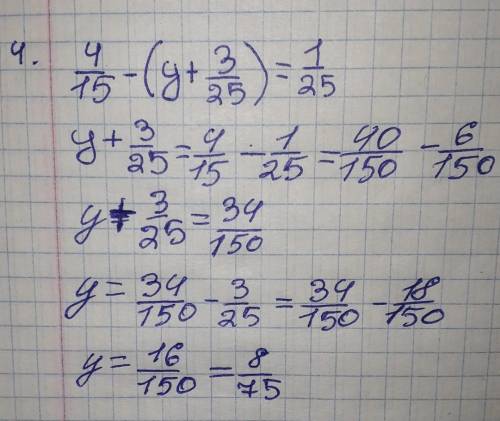 4. 4/15 - (y + 3/25) = 1/25
y + 3/25 = 4/15 - 1/25 = 40/150 - 6/150
y + 3/25 = 34/150
y = 34/150 - 3/25 = 34/150 - 18/150
y = 16/150 = 8/75